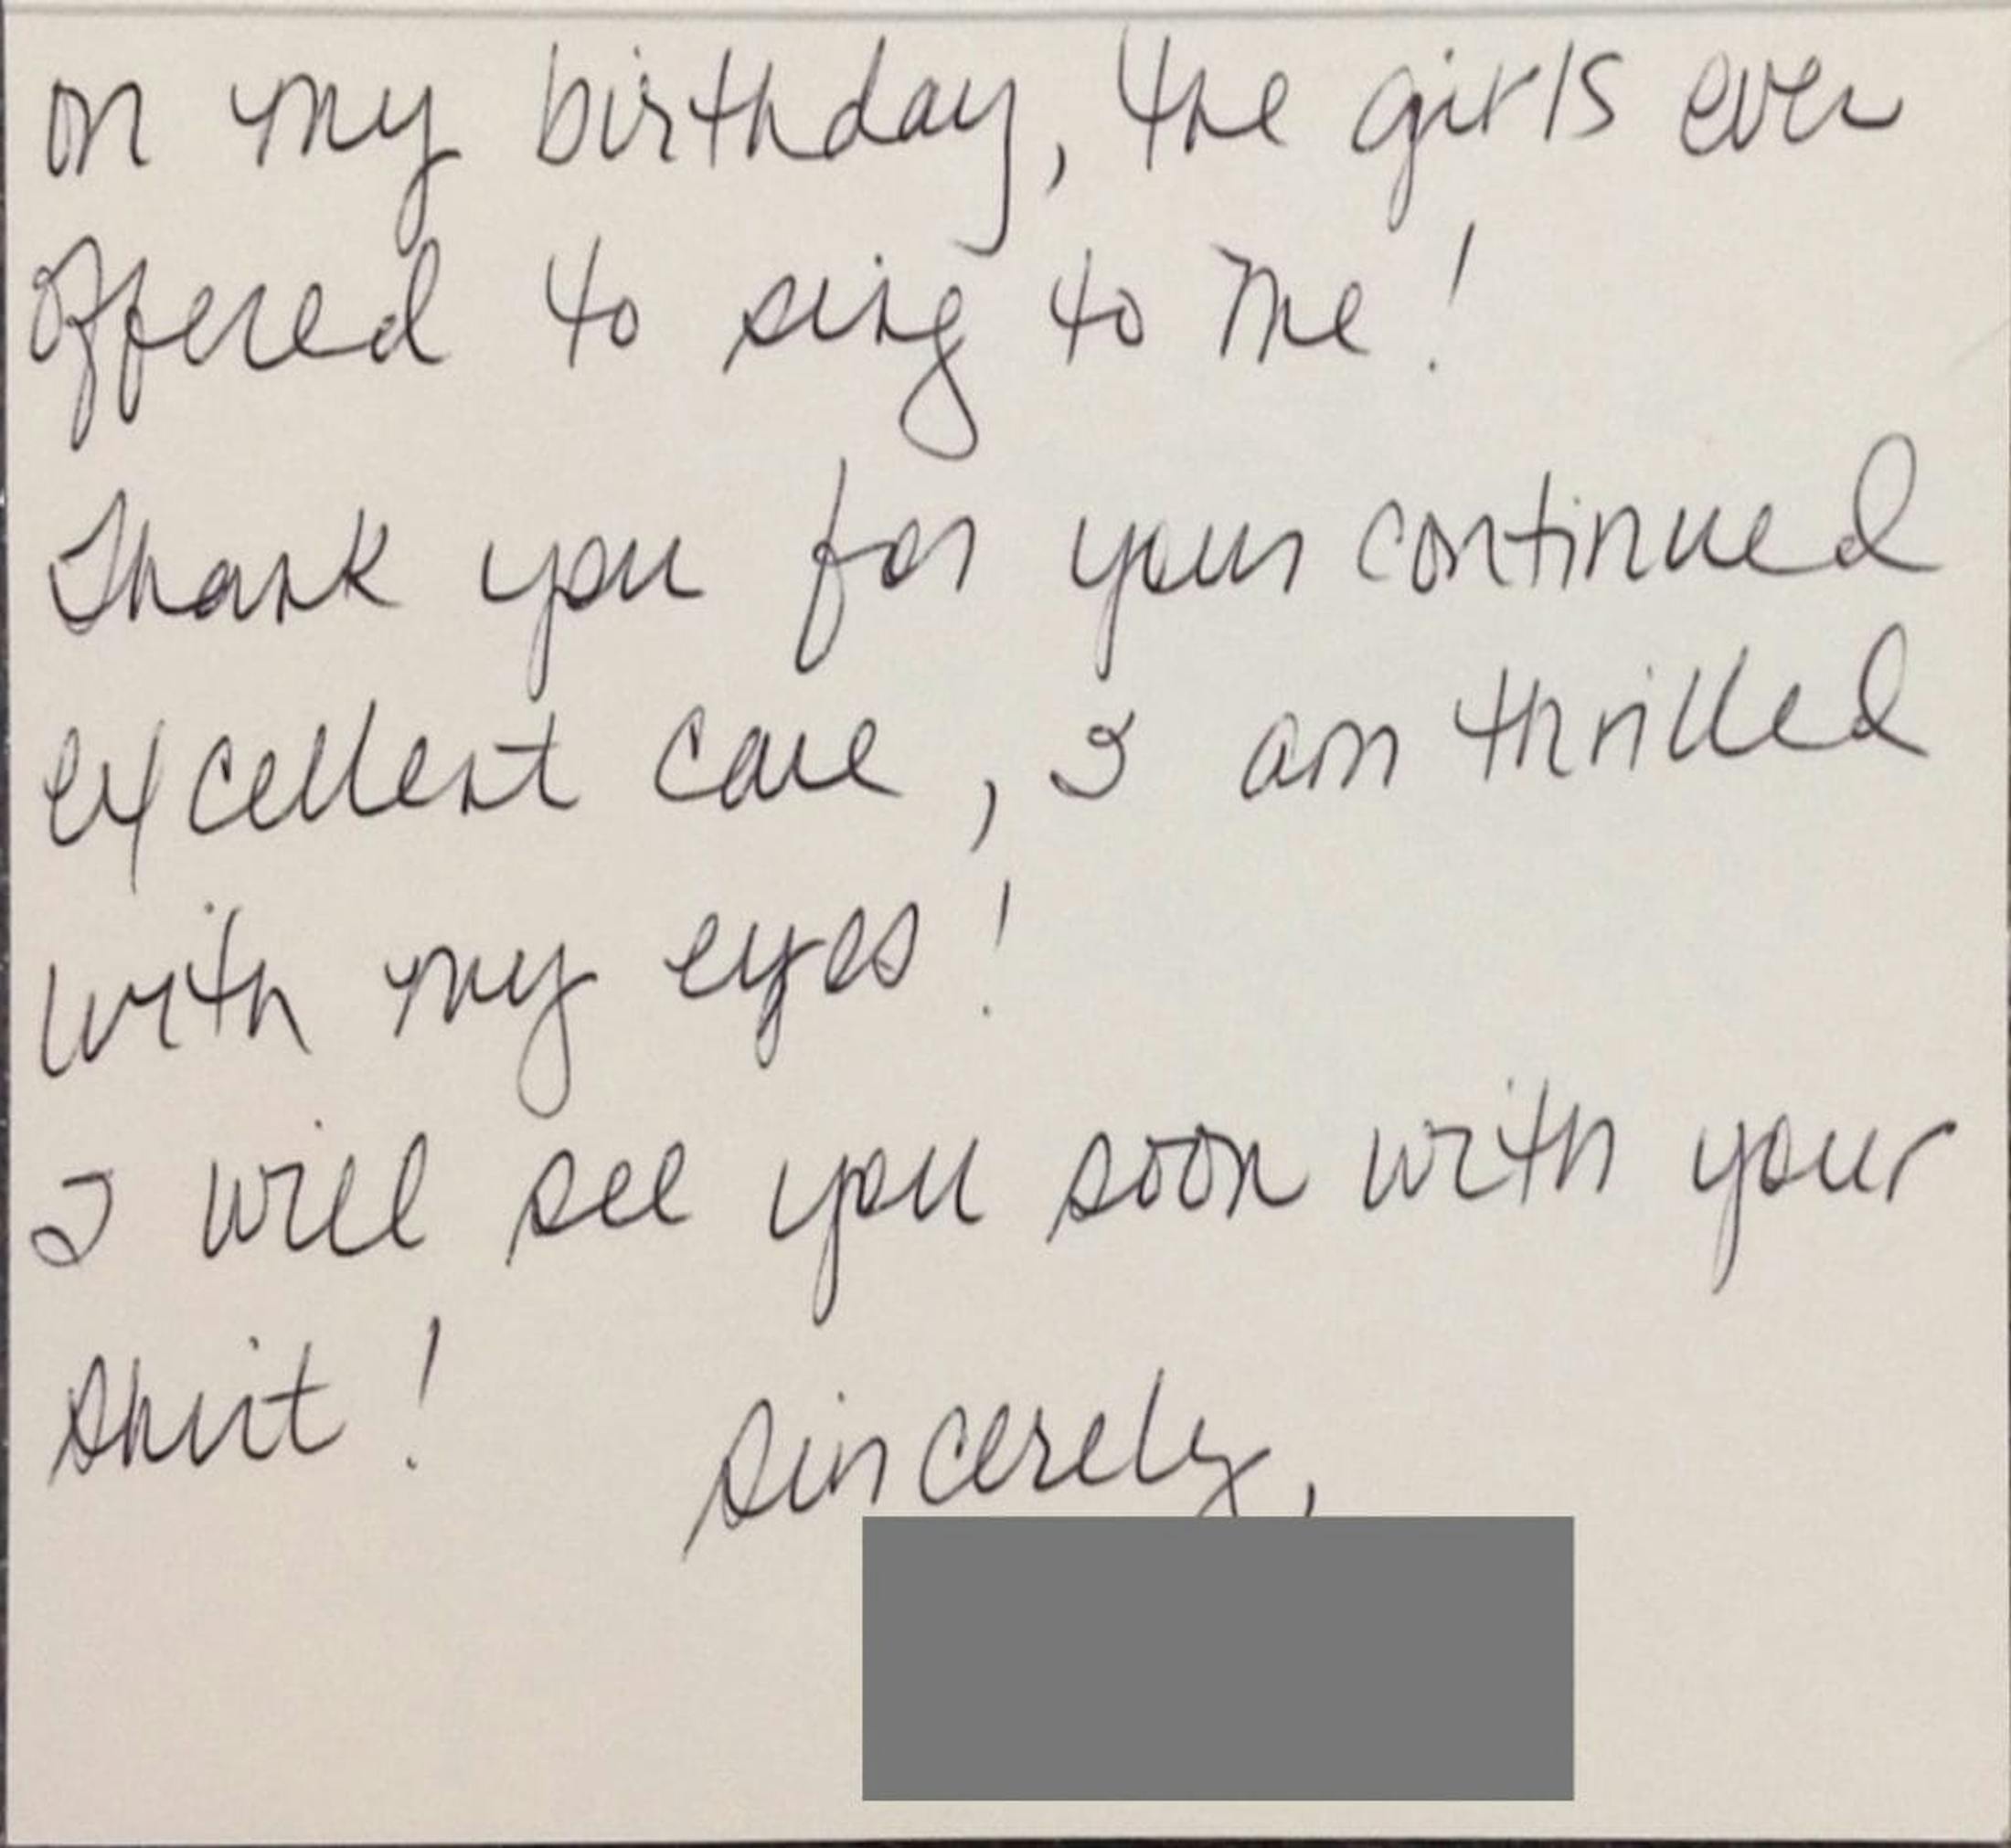 on my birthday, the girls even
offered to sing to me!
Thank you for your continued
excellent care, I am thrilled
with my eyes!
I will see you soon with your
shirt!
sincerely,